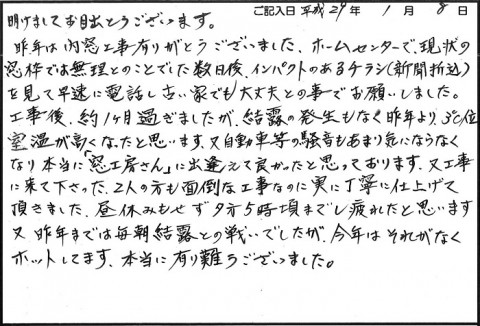 ご記入日 平成 29 年 1 月 8 日
明けましてお目出とうございます。
昨年は内窓工事有りがとうございました、ホームセンターで、現状の
窓枠では無理とのことでした数日後、インパクトのあるチラシ(新聞折込)
を見て早速に電話し古い家でも大丈夫との事でお願いしました。
工事後、約1ヶ月過ぎましたが、結露の発生もなく昨年より3℃位
室温が高くなったと思います、又自動車等の騒音もあまり気にならなく
なり本当に「窓工房さん」に出逢えて良かったと思っております、又工事
に来て下さった、2人の方も面倒な工事なのに実に丁寧に仕上げて
頂きました、昼休みもせず夕方5時頃までし疲れたと思います
又 昨年までは毎朝結露との戦いでしたが、今年はそれがなく
ホットしてます、本当に有り難うございました。